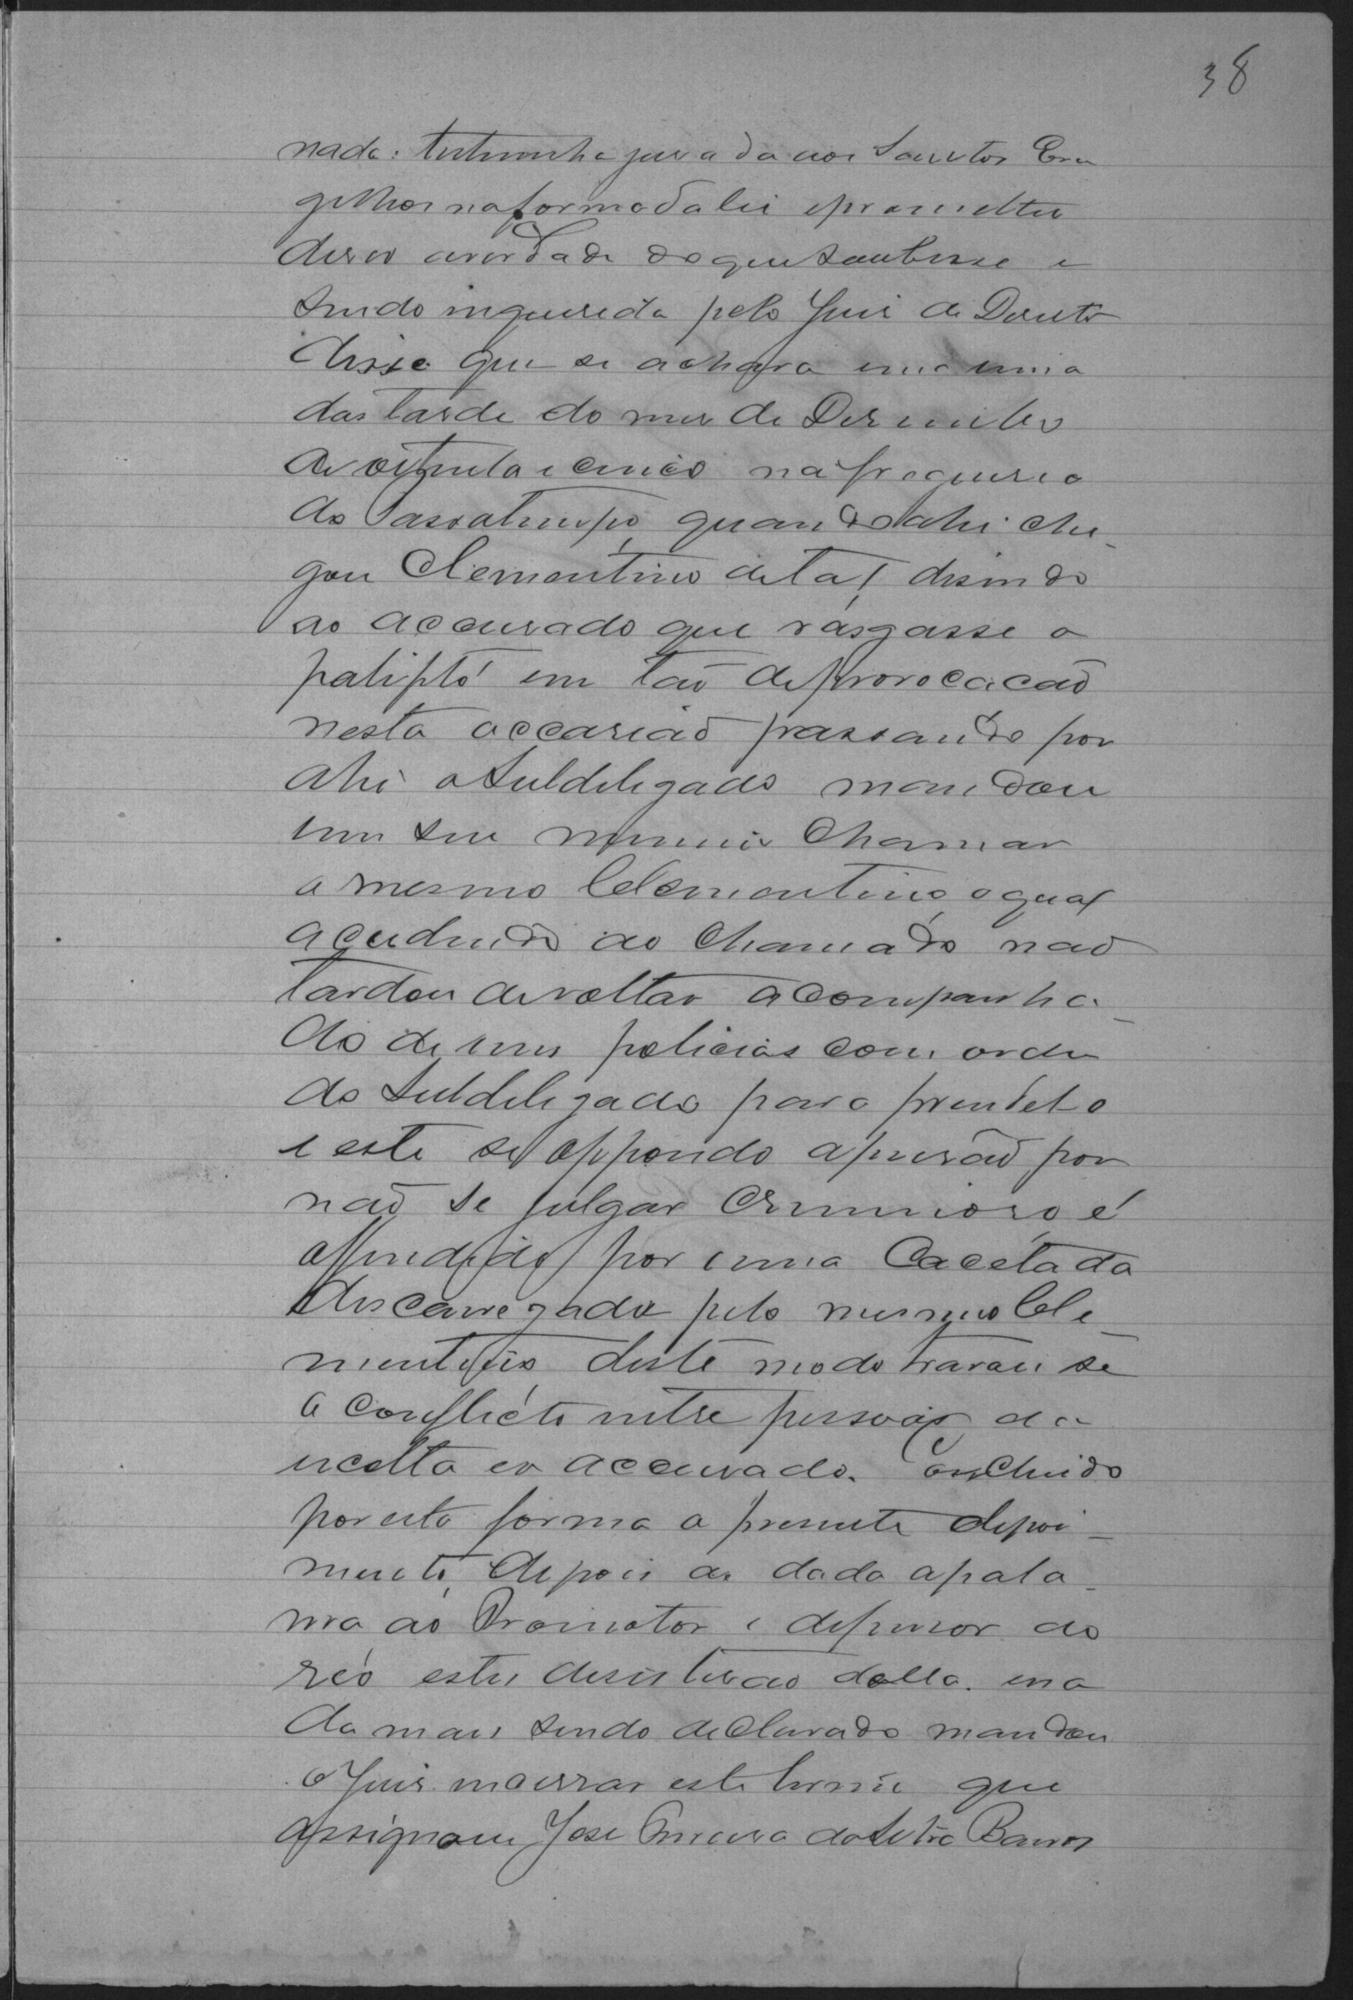 38
nada. testemunha jurada aos Santos Evan
gelhos na forma da lei e prometteu
diser a verdade do que soubesse e
sendo inquerida pelo Juis de Dereito
disse que se achava em uma
das tarde do mes de Desembro
de oitenta e cinco na freguesia
do Passatempo, quando ahi che_
gou Clementino de tal, disendo
ao accusado que rasgasse o
palitó em tão de provocacão
nesta occasião passando por
ahi o Subdelegado mandou
um seu menino chamar
o mesmo Clementino, o qual
acudindo ao chamado não
tardou de voltar acompanha_
do de uns policias com ordem
do Subdelegado para prendel-o
e este se oppondo a prisão por
não se julgar criminoso é
offendido por uma Cacetada
descarregada pelo mesmo Cle_
mentino, deste modo travou se
o conflicto entre pessoas da
escolta e o accusado. Concluido
por esta forma o presente depoi_
mento, depois de dada a pala_
vra ao Promotor e defensor do
reo estes desistirão della. e na
da mais sendo declarado mandou
o Juis encerrar este termo que
assignam José da Silva Barros